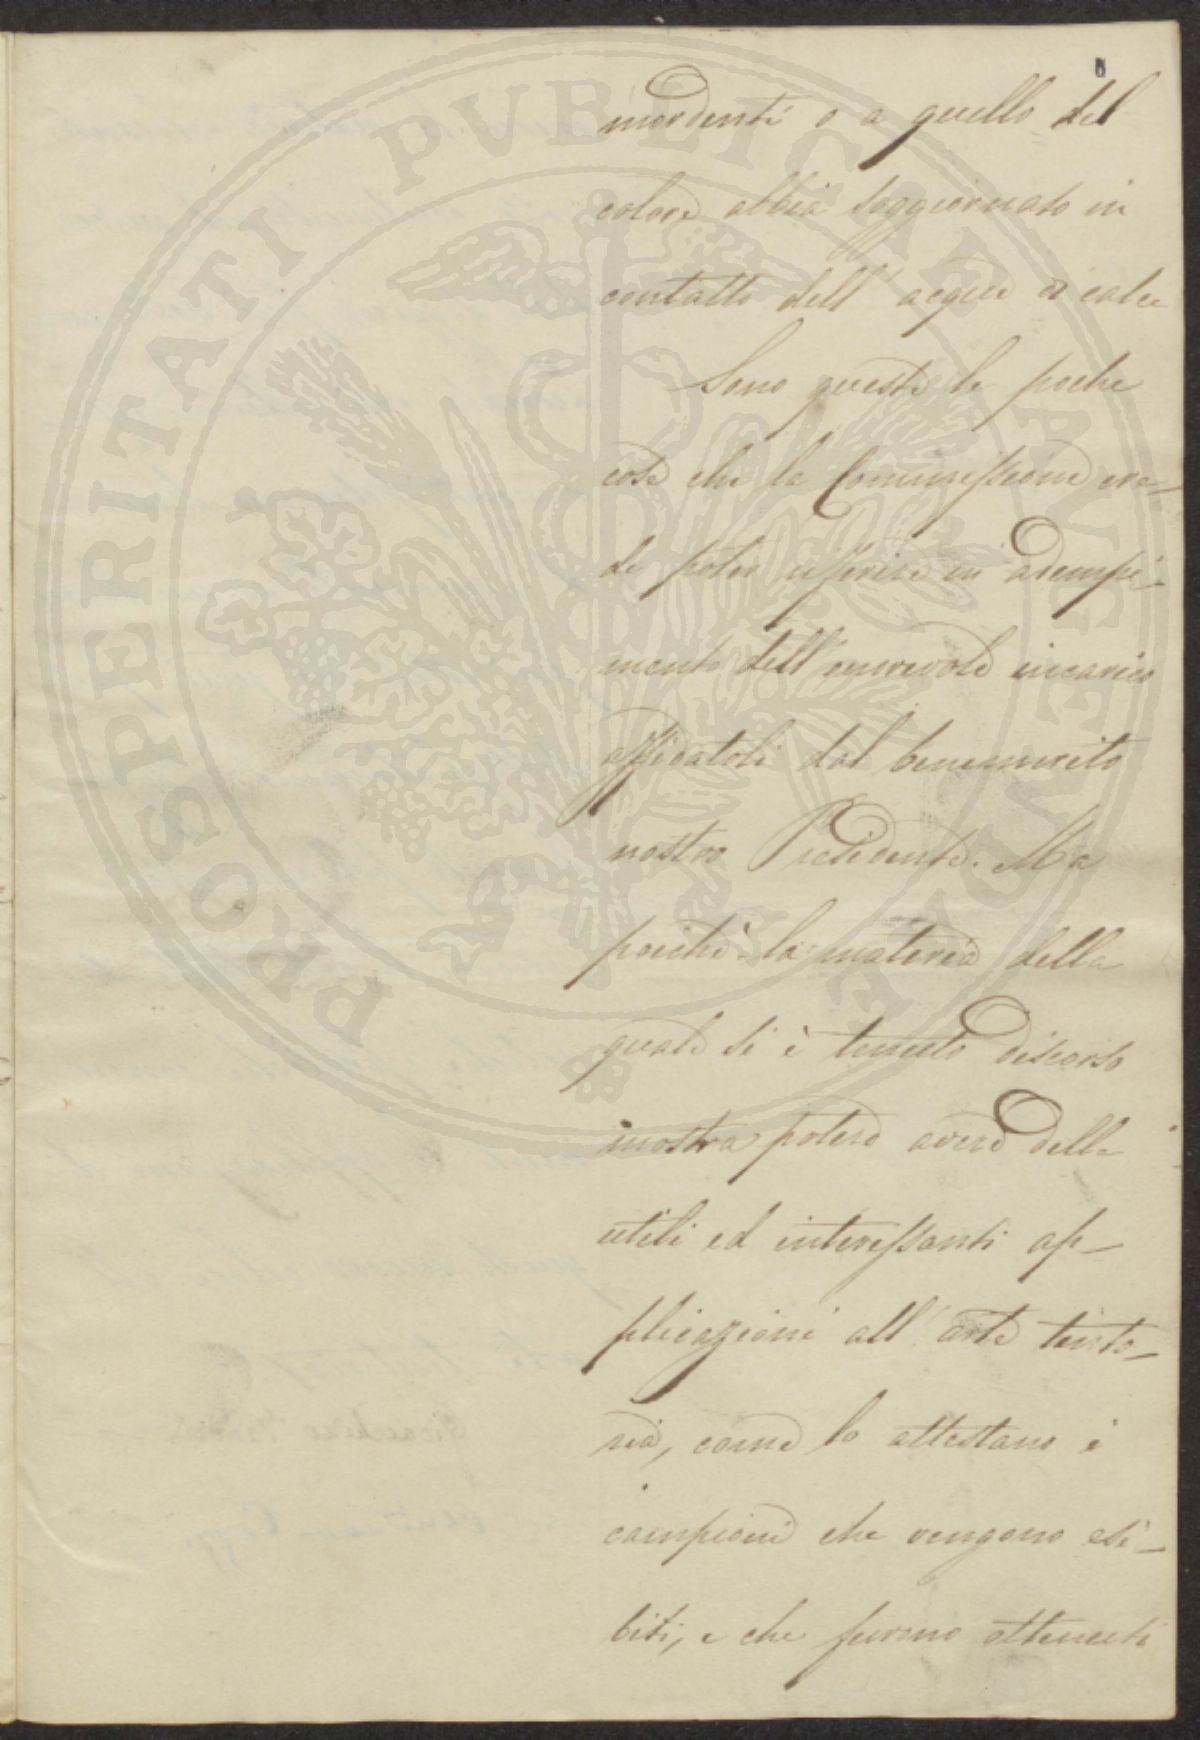 mordenti o a quello del
colore abbia soggiornato in
contatto dell' acqua di calce
Sono queste le poche
cose che la Commissione cre-
de poter riferire in adempi-
mento dell'onorevole incarico
affidatole dal benemerito
nostro Presidente. Ma
poichè la materia della
quale si è tenuto discorso
mostra potere avere delle
utili ed interessanti ap-
plicazioni all' arte tinto-
ria, come lo attestano i
campioni che vengono esi-
biti, e che furono ottenuti
PROSPERITATI PVBLICAE AVGENDAE